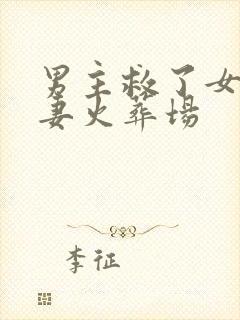 男主救了女
妻火葬场
李征